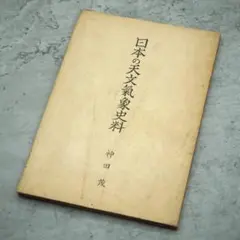 日本の天文氣象史料
神田茂